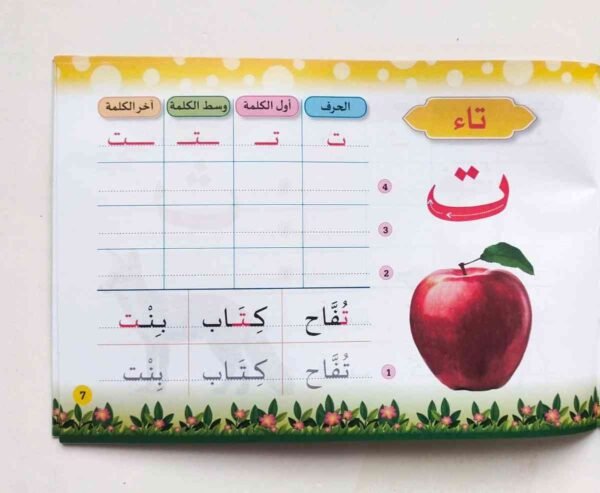 تاء
ت
الحرف أول الكلمة وسط الكلمة آخر الكلمة
ت تـ ـتـ ـت
4
3
2
تُفَّاح كِتَاب بِنْت
1
تُفَّاح كِتَاب بِنْت
7